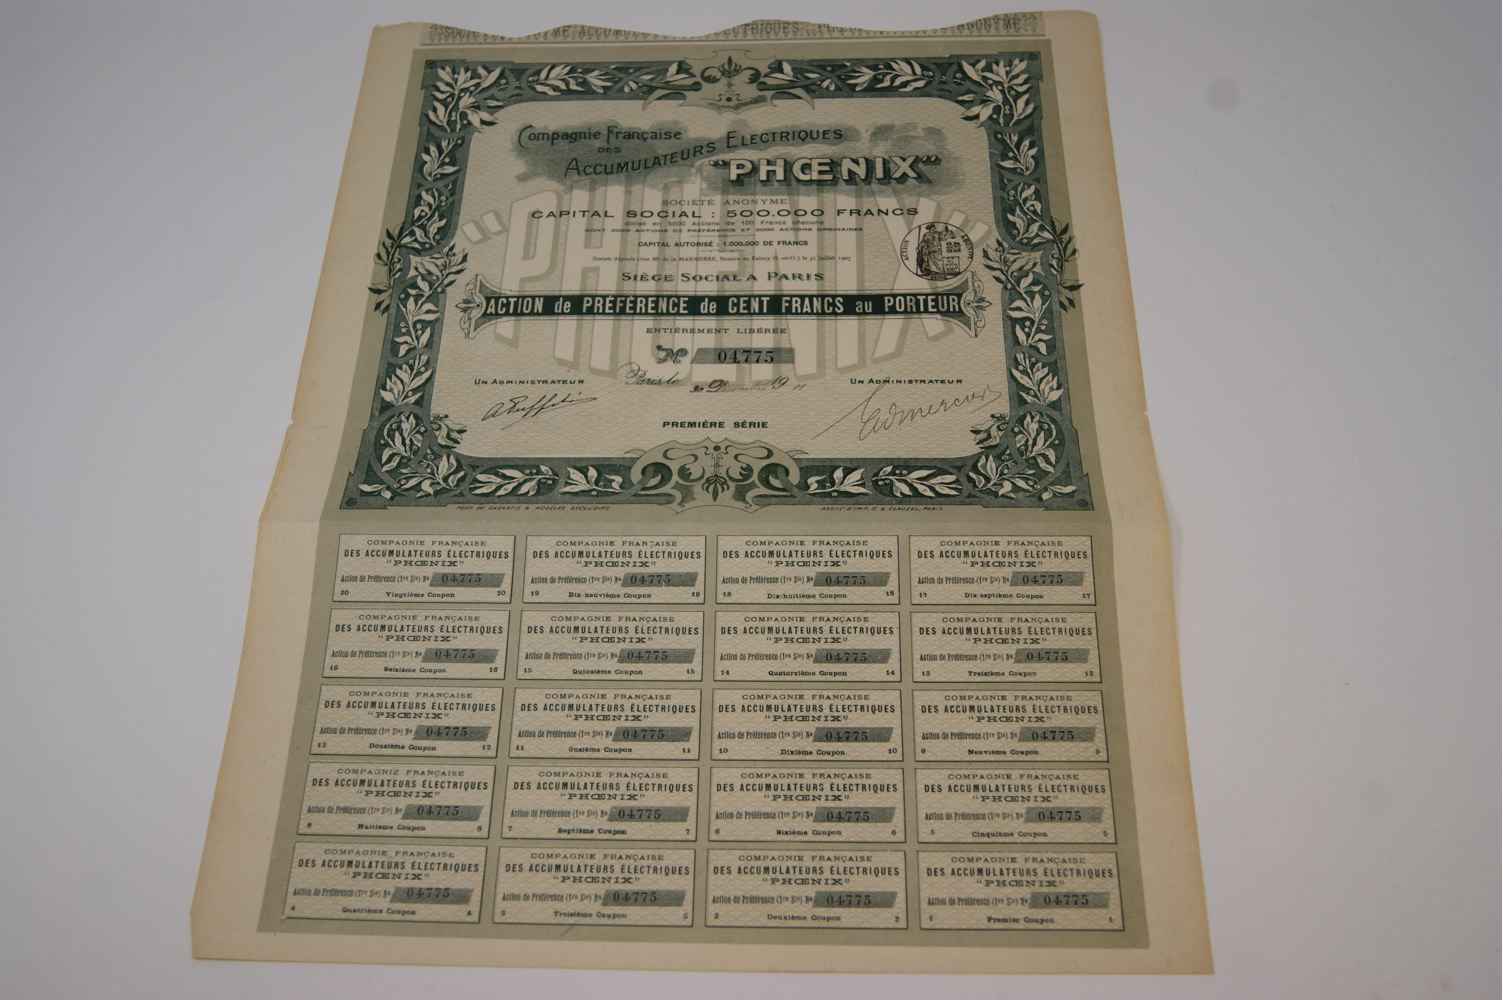 Compagnie Française
DES
ACCUMULATEURS ELECTRIQUES
"PHŒNIX"
SOCIÉTÉ ANONYME
CAPITAL SOCIAL : 500.000 FRANCS
divisé en 5000 Actions de 100 Francs chacune
DONT 2000 ACTIONS DE PRÉFÉRENCE ET 3000 ACTIONS ORDINAIRES
CAPITAL AUTORISÉ : 1.000.000 DE FRANCS
Statuts déposés chez Me de la MARNIERRE, Notaire au Raincy (S.-et-O.) le 31 Juillet 1907
SIÈGE SOCIAL A PARIS
ACTION de PRÉFÉRENCE de CENT FRANCS au PORTEUR
ENTIÈREMENT LIBÉRÉE
No 04775
UN ADMINISTRATEUR
Paris, le 30 19
UN ADMINISTRATEUR
PREMIÈRE SÉRIE
"PHŒNIX"
FOND DE GARANTIE & MODÈLES EXCLUSIFS
ASSOC. D'IMP. E. & CLAUSEL, PARIS
COMPAGNIE FRANÇAISE
DES ACCUMULATEURS ÉLECTRIQUES
"PHŒNIX"
Action de Préférence (1re Sie) No 04775
20 Vingtième Coupon 20
COMPAGNIE FRANÇAISE
DES ACCUMULATEURS ÉLECTRIQUES
"PHŒNIX"
Action de Préférence (1re Sie) No 04775
19 Dix-neuvième Coupon 19
COMPAGNIE FRANÇAISE
DES ACCUMULATEURS ÉLECTRIQUES
"PHŒNIX"
Action de Préférence (1re Sie) No 04775
18 Dix-huitième Coupon 18
COMPAGNIE FRANÇAISE
DES ACCUMULATEURS ÉLECTRIQUES
"PHŒNIX"
Action de Préférence (1re Sie) No 04775
17 Dix-septième Coupon 17
COMPAGNIE FRANÇAISE
DES ACCUMULATEURS ÉLECTRIQUES
"PHŒNIX"
Action de Préférence (1re Sie) No 04775
16 Seizième Coupon 16
COMPAGNIE FRANÇAISE
DES ACCUMULATEURS ÉLECTRIQUES
"PHŒNIX"
Action de Préférence (1re Sie) No 04775
15 Quinzième Coupon 15
COMPAGNIE FRANÇAISE
DES ACCUMULATEURS ÉLECTRIQUES
"PHŒNIX"
Action de Préférence (1re Sie) No 04775
14 Quatorzième Coupon 14
COMPAGNIE FRANÇAISE
DES ACCUMULATEURS ÉLECTRIQUES
"PHŒNIX"
Action de Préférence (1re Sie) No 04775
13 Treizième Coupon 13
COMPAGNIE FRANÇAISE
DES ACCUMULATEURS ÉLECTRIQUES
"PHŒNIX"
Action de Préférence (1re Sie) No 04775
12 Douzième Coupon 12
COMPAGNIE FRANÇAISE
DES ACCUMULATEURS ÉLECTRIQUES
"PHŒNIX"
Action de Préférence (1re Sie) No 04775
11 Onzième Coupon 11
COMPAGNIE FRANÇAISE
DES ACCUMULATEURS ÉLECTRIQUES
"PHŒNIX"
Action de Préférence (1re Sie) No 04775
10 Dixième Coupon 10
COMPAGNIE FRANÇAISE
DES ACCUMULATEURS ÉLECTRIQUES
"PHŒNIX"
Action de Préférence (1re Sie) No 04775
9 Neuvième Coupon 9
COMPAGNIE FRANÇAISE
DES ACCUMULATEURS ÉLECTRIQUES
"PHŒNIX"
Action de Préférence (1re Sie) No 04775
8 Huitième Coupon 8
COMPAGNIE FRANÇAISE
DES ACCUMULATEURS ÉLECTRIQUES
"PHŒNIX"
Action de Préférence (1re Sie) No 04775
7 Septième Coupon 7
COMPAGNIE FRANÇAISE
DES ACCUMULATEURS ÉLECTRIQUES
"PHŒNIX"
Action de Préférence (1re Sie) No 04775
6 Sixième Coupon 6
COMPAGNIE FRANÇAISE
DES ACCUMULATEURS ÉLECTRIQUES
"PHŒNIX"
Action de Préférence (1re Sie) No 04775
5 Cinquième Coupon 5
COMPAGNIE FRANÇAISE
DES ACCUMULATEURS ÉLECTRIQUES
"PHŒNIX"
Action de Préférence (1re Sie) No 04775
4 Quatrième Coupon 4
COMPAGNIE FRANÇAISE
DES ACCUMULATEURS ÉLECTRIQUES
"PHŒNIX"
Action de Préférence (1re Sie) No 04775
3 Troisième Coupon 3
COMPAGNIE FRANÇAISE
DES ACCUMULATEURS ÉLECTRIQUES
"PHŒNIX"
Action de Préférence (1re Sie) No 04775
2 Deuxième Coupon 2
COMPAGNIE FRANÇAISE
DES ACCUMULATEURS ÉLECTRIQUES
"PHŒNIX"
Action de Préférence (1re Sie) No 04775
1 Premier Coupon 1